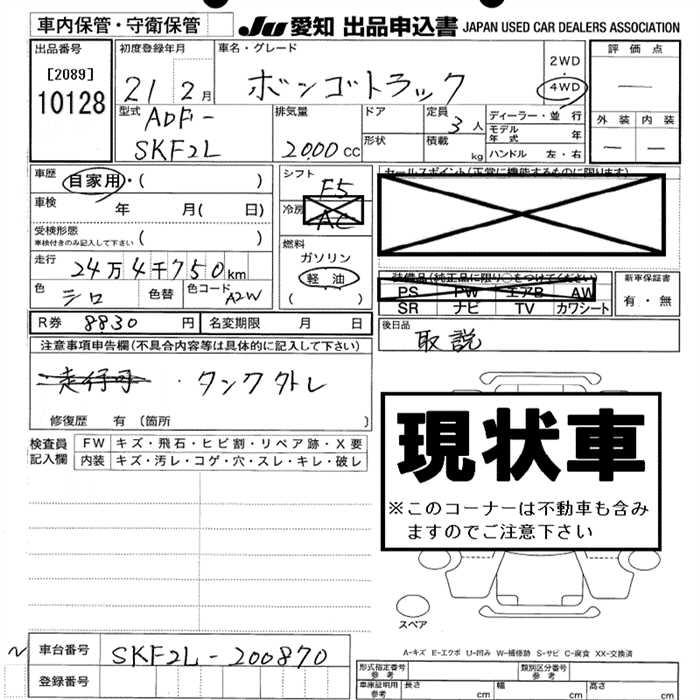 車内保管・守衛保管 JU 愛知 出品申込書 JAPAN USED CAR DEALERS ASSOCIATION
出品番号 初度登録年月 車名・グレード 評価点
[2089] 21 2月 ボンゴトラック 2WD・4WD
10128
型式 排気量 ドア 定員 ディーラー・並行 外装 内装
ADF- 3人 モデル年式 年
SKF2L 2000cc 形状 積載 kg ハンドル 左・右
車歴 自家用・( ) シフト F5 セールスポイント(正常に機能するものに限ります)
車検 年 月( 日) 冷房 AC
受検形態 ( )
車検付きのみ記入して下さい
燃料 ガソリン
走行 24万4千750km 軽油 装備品(純正品に限り○をつけてください) 新車保証書
色 シロ 色替 色コード A2W ( ) PS PW エアB AW 有・無
SR ナビ TV カワシート
R券 8830円 名変期限 月 日 後日品
取説
注意事項申告欄(不具合内容等は具体的に記入して下さい)
・タンク外レ
修復歴 有(箇所 )
現状車
※このコーナーは不動車も含み
ますのでご注意下さい
検査員 FW キズ・飛石・ヒビ割・リペア跡・X要
記入欄 内装 キズ・汚レ・コゲ・穴・スレ・キレ・破レ
スペア
A-キズ E-エクボ U-凹み W-補修跡 S-サビ C-腐食 XX-交換済
車台番号 SKF2L-200870
登録番号
形式指定番号 参考 類別区分番号 参考
車庫証明用 参考 長さ cm 幅 cm 高さ cm